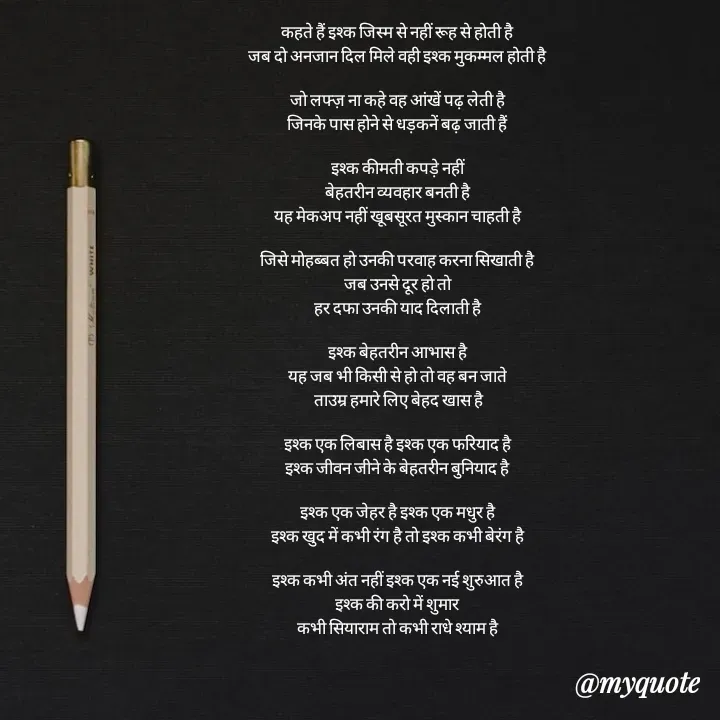 कहते हैं इश्क जिस्म से नहीं रूह से होती है
जब दो अनजान दिल मिले वही इश्क मुकम्मल होती है
जो लफ्ज़ ना कहे वह आंखें पढ़ लेती है
जिनके पास होने से धड़कनें बढ़ जाती हैं
इश्क कीमती कपड़े नहीं
बेहतरीन व्यवहार बनती है
यह मेकअप नहीं खूबसूरत मुस्कान चाहती है
जिसे मोहब्बत हो उनकी परवाह करना सिखाती है
जब उनसे दूर हो तो
हर दफा उनकी याद दिलाती है
इश्क बेहतरीन आभास है
यह जब भी किसी से हो तो वह बन जाते
ताउम्र हमारे लिए बेहद खास है
इश्क एक लिबास है इश्क एक फरियाद है
इश्क जीवन जीने के बेहतरीन बुनियाद है
इश्क एक जेहर है इश्क एक मधुर है
इश्क खुद में कभी रंग है तो इश्क कभी बेरंग है
इश्क कभी अंत नहीं इश्क एक नई शुरुआत है
इश्क की करो में शुमार
कभी सियाराम तो कभी राधे श्याम है
WHITE
@myquote